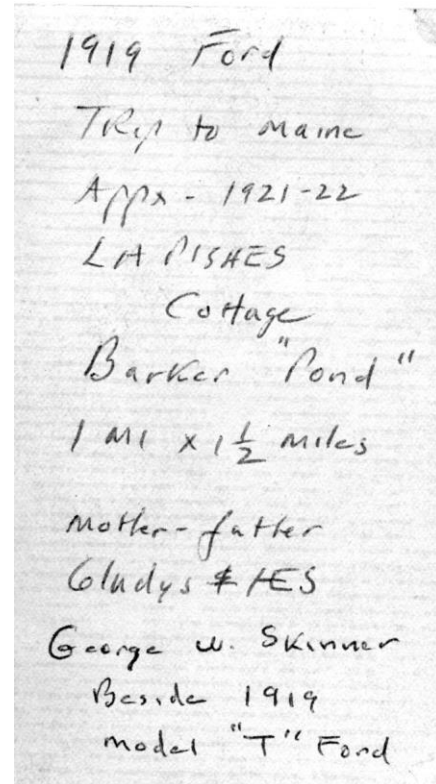 1919 Ford
Trip to Maine
Appx - 1921-22
LA PISHES
Cottage
Barker "Pond"
1 MI x 1 1/2 miles
Mother-father
Gladys & HES
George W. Skinner
Beside 1919
Model "T" Ford